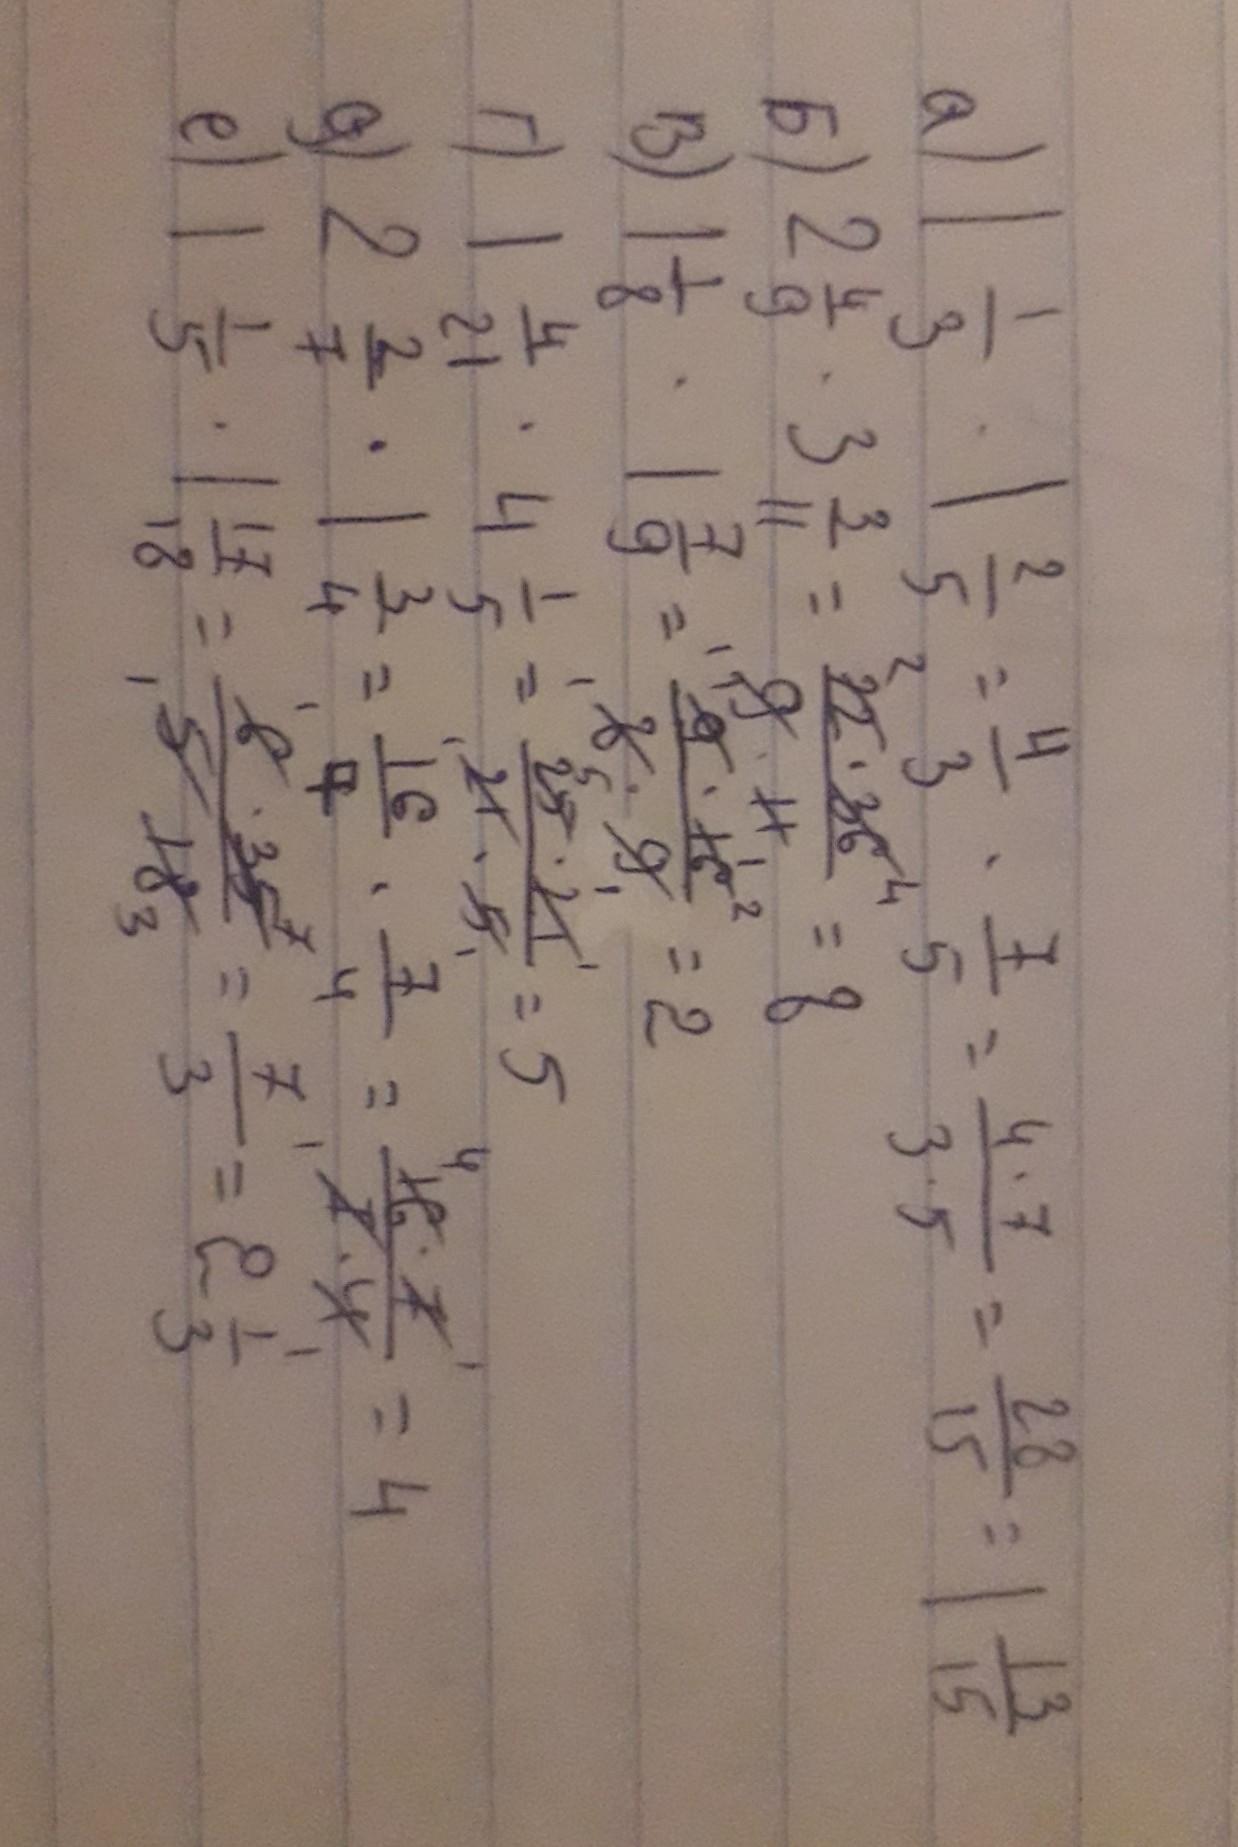 а) 1 1/3 · 1 2/5 = 4/3 · 7/5 = 4·7/3·5 = 28/15 = 1 13/15
Б) 2 4/9 · 3 3/11 = 22·36/9·11 = 8
В) 1 1/8 · 1 7/9 = 9·16/8·9 = 2
Г) 1 4/21 · 4 1/5 = 25·21/21·5 = 5
д) 2 2/7 · 1 3/4 = 16/7 · 7/4 = 16·7/7·4 = 4
е) 1 1/5 · 1 17/18 = 6·35/5·18 = 7/3 = 2 1/3